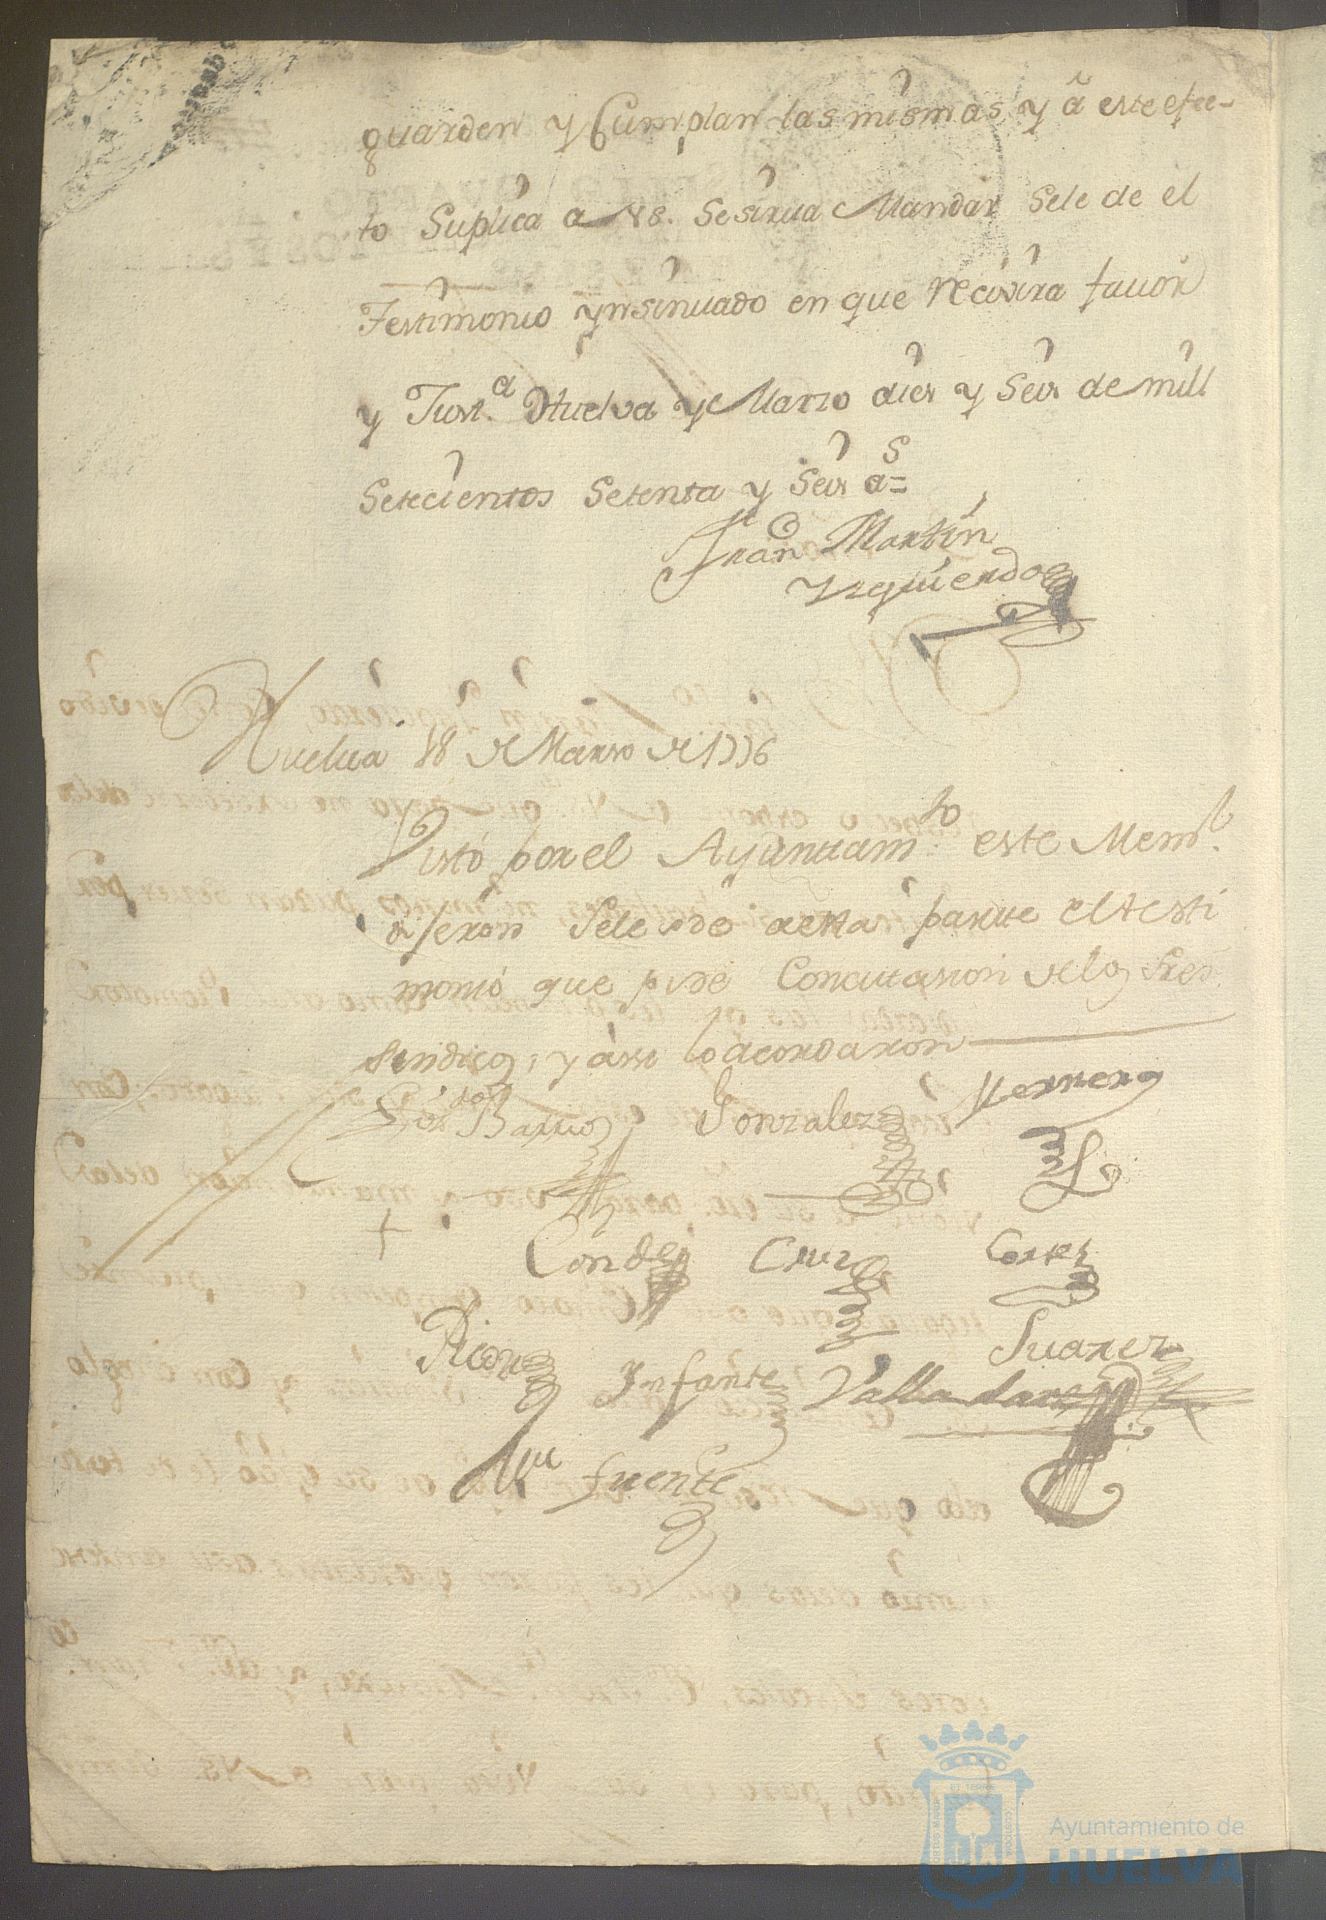 guarden y Cumplan las mismas y a este efec-
to Suplica a VS. Se sirva Mandar Sele de el
Testimonio ynsinuado en que recivira favor
y Just.a Huelva y Marzo dies y Seis de mill
Setecientos Setenta y Seis a.s=
Fran.co Martin
Yzquierdo
Huelva 18 de Marzo de 1776
Visto por el Ayuntam.to este Mem.l
dixeron Sele de a esta parte el testi
monio que pide Con citasion de los Sres.
Sindicos, y asi lo acordaron
Barrio Gonzalez Herrera
Conde Cruz Cortes
Rico Infante Valladares Suarez
fuente
Ayuntamiento de
HUELVA